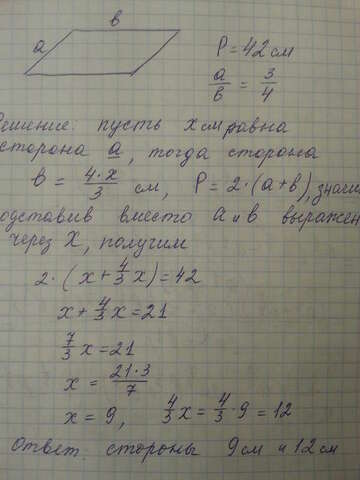 в
а
P = 42 см
а/в = 3/4
Решение: пусть x см равна
сторона а, тогда сторона
в = 4·x/3 см, P = 2·(а+в), значи
одставив вместо а и в выражен
через X, получим
2·(x + 4/3 x) = 42
x + 4/3 x = 21
7/3 x = 21
x = 21·3/7
x = 9, 4/3 x = 4/3 · 9 = 12
Ответ: стороны 9 см и 12 см